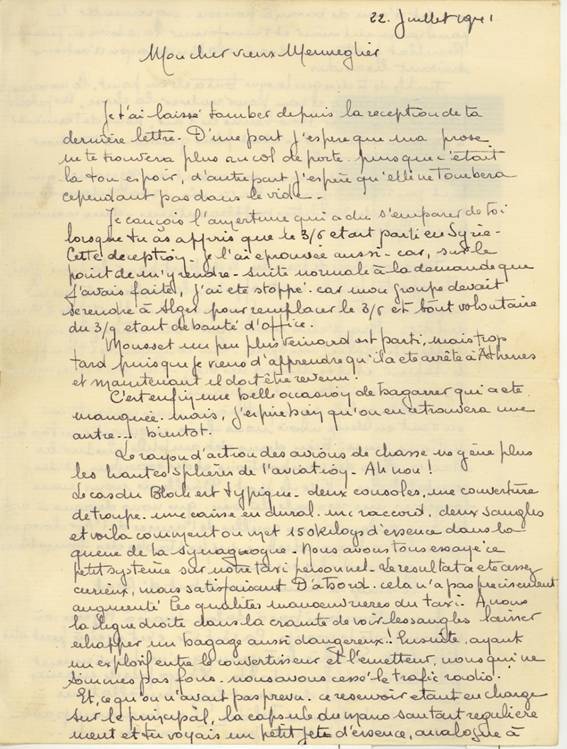 22. Juillet 1941
Mon cher vieux Menneglier
Je t'ai laissé tomber depuis la reception de ta
dernière lettre. D'une part j'espere que ma prose
ne te trouvera plus au col de porte. puisque c'était
la ton espoir, d'autre part j'espère qu'elle ne tombera
cependant pas dans le vide.
Je conçois l'amertume qui a du s'emparer de toi
lorsque tu as appris que le 3/6 etait parti en Syrie.
Cette deception. je l'ai eprouvée aussi. car, sur le
point de m'y rendre. suite normale à la demande que
j'avais faite, j'ai ete stoppé. car mon groupe devait
se rendre à Alger pour remplacer le 3/6 et tout volontaire
du 3/9 etait debouté d'office.
Mousset un peu plus veinard est parti, mais trop
tard puisque je viens d'apprendre qu'il a ete arrêté à Athenes
et maintenant il doit être revenu.
C'est enfin une belle occasion de bagarrer qui a ete
manquée. mais, j'espère bien qu'on en retrouvera une
autre... bientot.
Le rayon d'action des avions de chasse ne gêne plus
les hautes sphères de l'aviation. Ah non!
Le cas du Bloch est typique. deux consoles, une couverture
de troupe. une caisse en dural. un raccord, deux sangles
et voila comment on met 150 kilogs d'essence dans la
queue de la synagogue. Nous avons tous essayé ce
petit système sur notre taxi personnel. Le resultat a ete assez
curieux, mais satisfaisant. D'abord. cela n'a pas precisement
augmenté les qualités manoeuvrieres du taxi. A nous
la ligne droite dans la crainte de voir les sangles laisser
echapper un bagage aussi dangereux! Ensuite, ayant
un explosif entre le convertisseur et l'emetteur, nous qui ne
sommes pas fous. nous avons cessé le trafic radio.
Et, ce qu'on n'avait pas prevu. ce reservoir etant en charge
sur le principal, la capsule du mano sautant reguliere
ment et tu voyais un petit jet d'essence, analogue à